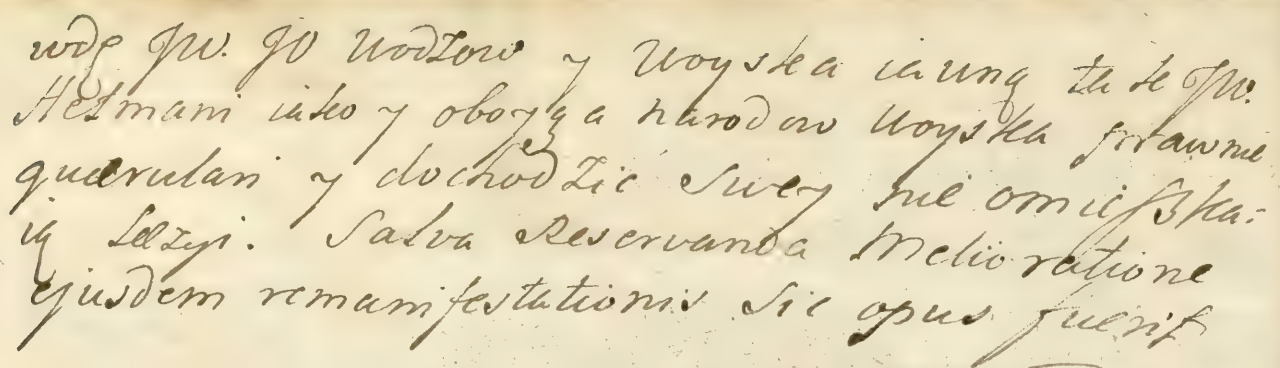 wdę JW. JO Wodzow y Woyska iawną tak JW.
Hetmani iako y oboyga narodow Woyska prawnie
quærulari y dochodzić Swey nie omieſszka:
ią Lezyi. Salva Reservanda Melioratione
ejusdem remanifestationis Sic opus fuerit